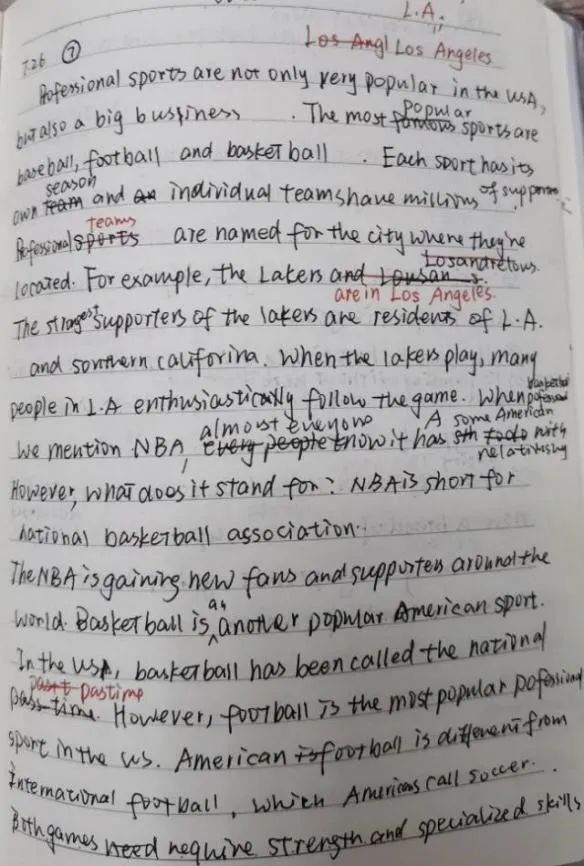 L.A.
7.26 ⑦ Los Angl Los Angeles
Pofessional sports are not only very popular in the USA,
but also a big bussiness . The most famous popular sports are
baseball, football and basketball . Each sport has its
own team season and an individual teams have millions of
Pofessional sports teams are named for the city where they're
located. For example, the Lakers and
are in Los Angeles.
The strongest supporters of the lakers are residents of L.A.
and southern califorina. When the lakers play, many
people in L.A enthusiastically follow the game. When
we mention NBA, every people almost everyone know it has sth to do with
A some American basketball
However, what does it stand for? NBA is short for
national basketball association.
The NBA is gaining new fans and supporters around the
world. Basketball is as another popular American sport.
In the USA, basketball has been called the national
pass-time. past pastime However, football is the most popular pofessional
sport in the U.S. American is football is different from
international football, which Americans call soccer.
Both games need require strength and specialized skills